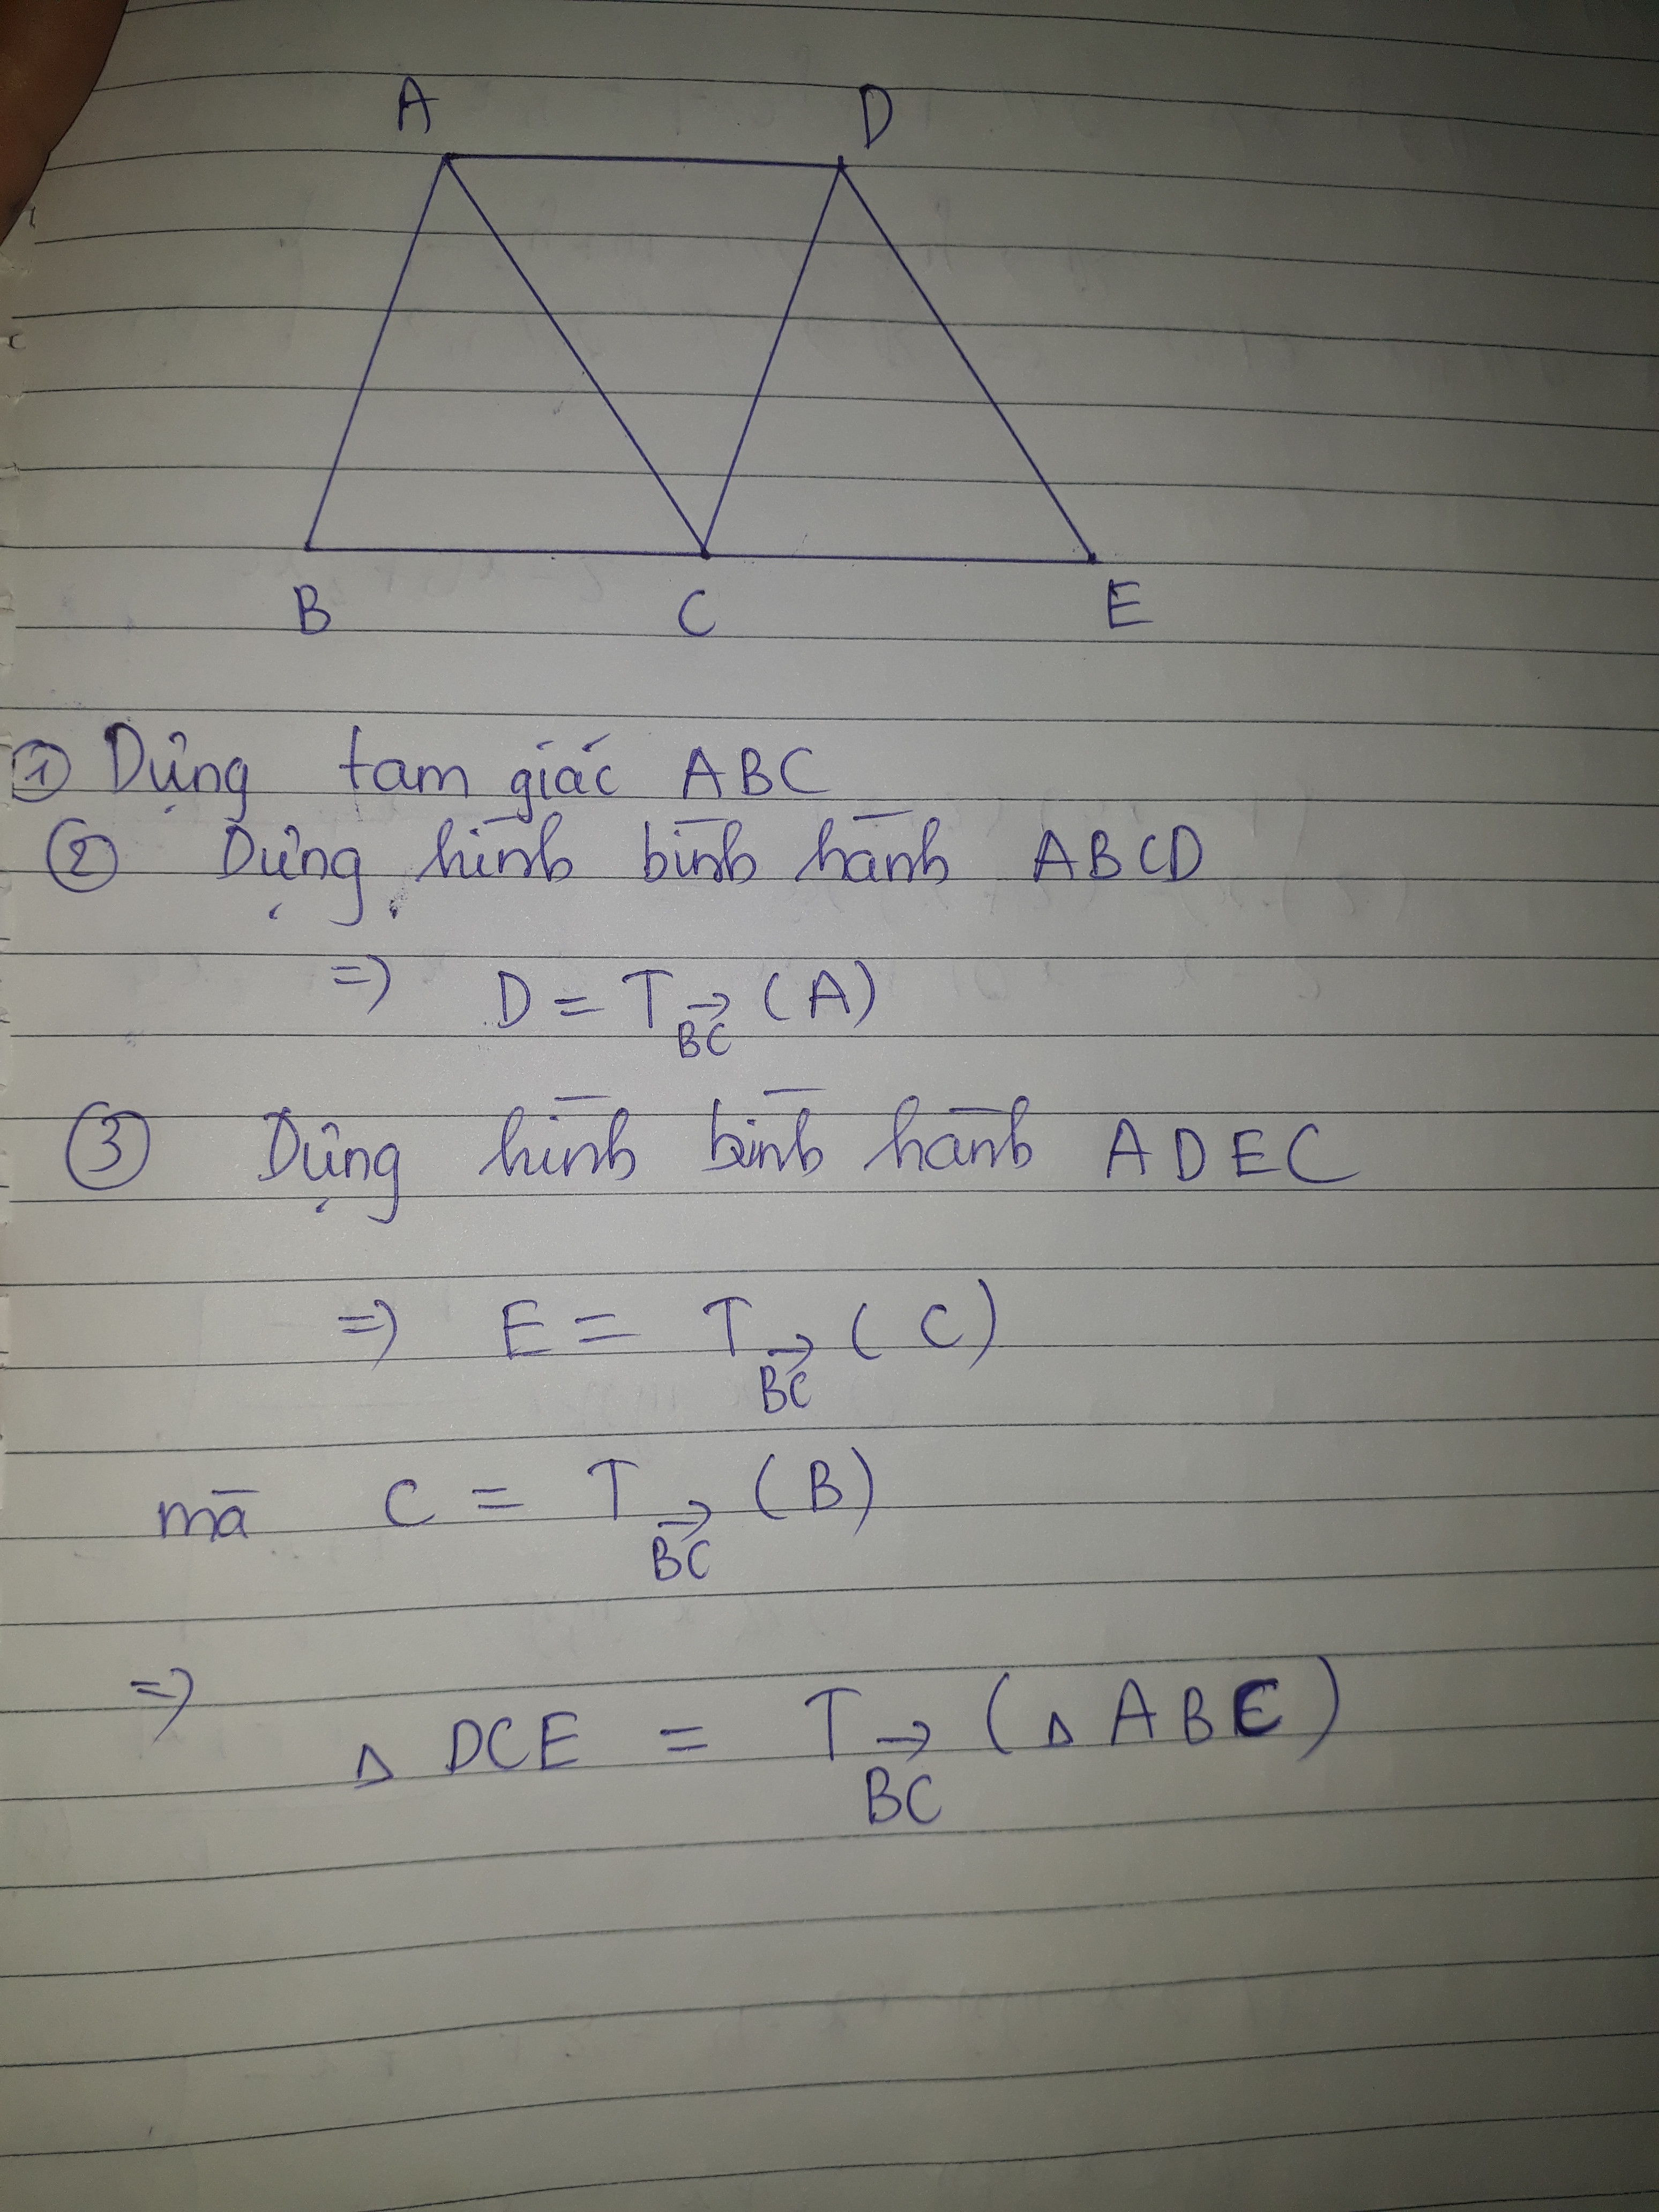 A D
B C E
① Dựng tam giác ABC
② Dựng hình bình hành ABCD
=> D = T_{\overrightarrow{BC}} (A)
③ Dựng hình bình hành ADEC
=> E = T_{\overrightarrow{BC}} (C)
mà C = T_{\overrightarrow{BC}} (B)
=> Δ DCE = T_{\overrightarrow{BC}} (Δ ABC)